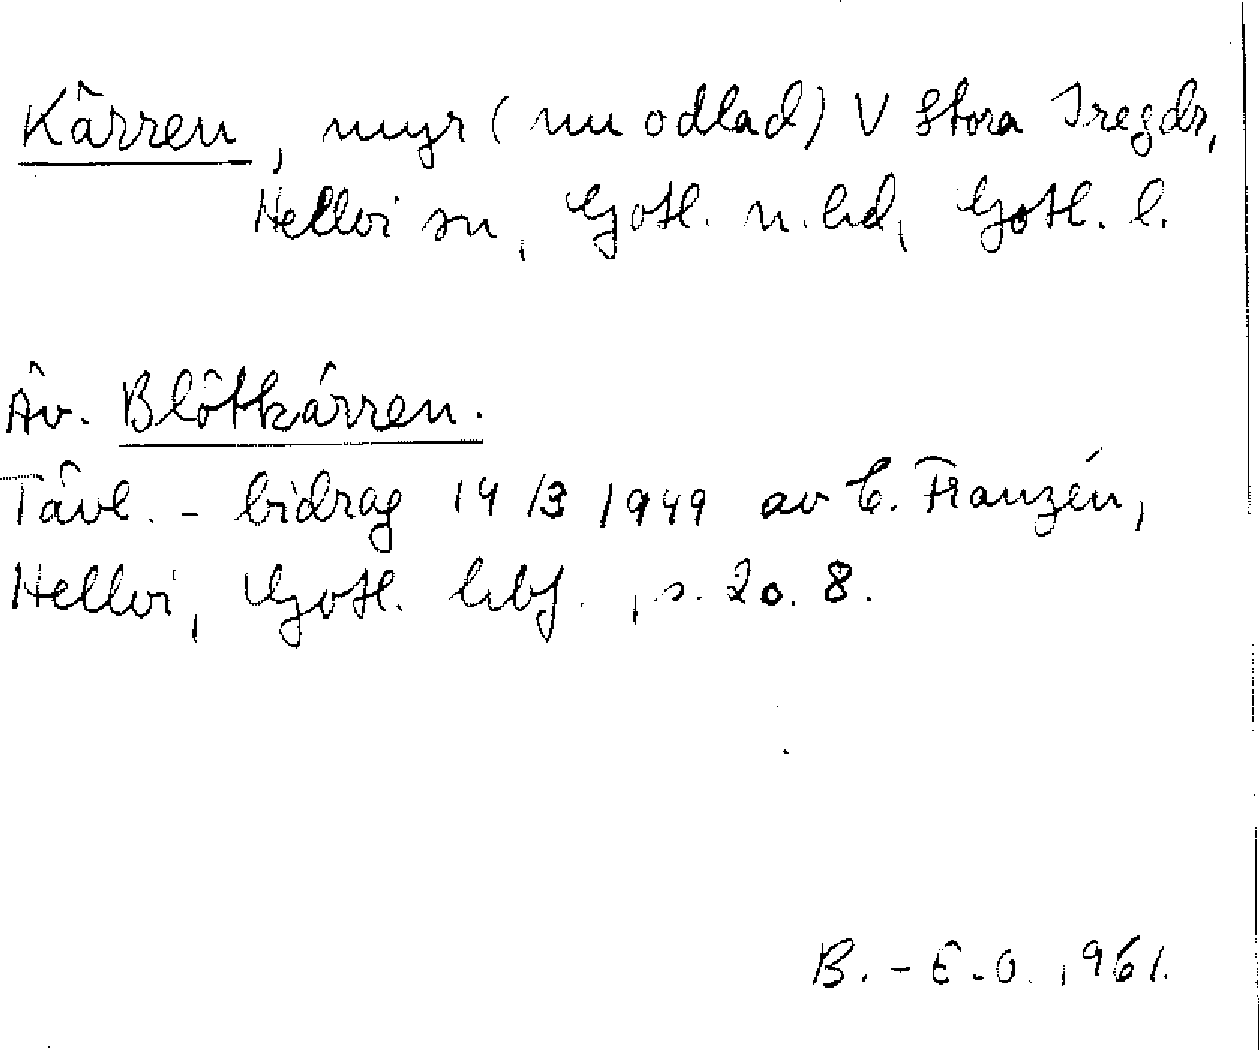 Kärren, myr (nu odlad) V Stora Iregdr,
Hellvi sn, Gotl. n. hd, Gotl. l.
Äv. Blötkärren.
Tävl. - bidrag 14/3 1949 av C. Franzén,
Hellvi, Gotl. hbf., s. 20. 8.
B.-E.O. 1961.